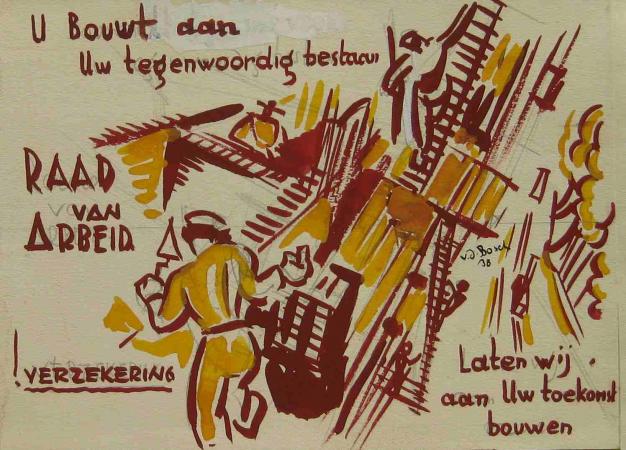 U Bouwt aan
Uw tegenwoordig bestaan
RAAD
VAN
ARBEID
v.d. Bosch
38
! VERZEKERING
Laten wij
aan Uw toekomst
bouwen